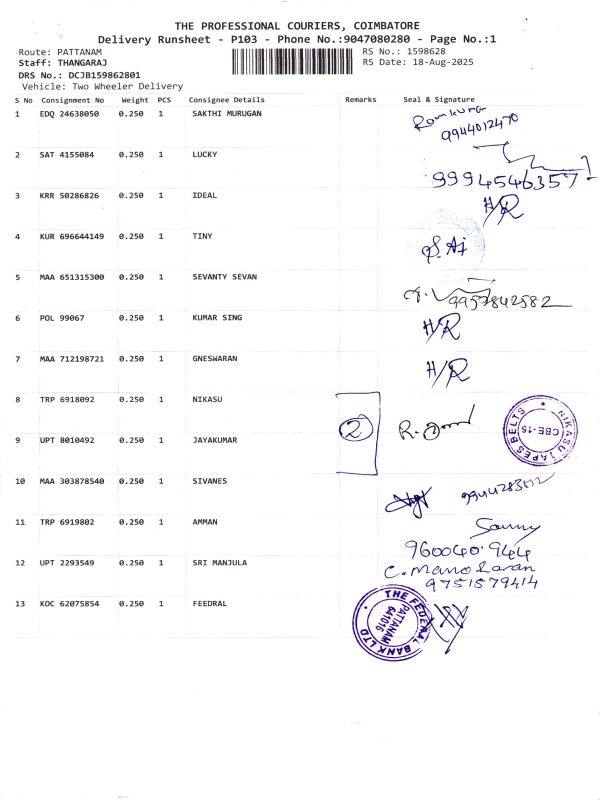 THE PROFESSIONAL COURIERS, COIMBATORE
Delivery Runsheet - P103 - Phone No.:9047080280 - Page No.:1
Route: PATTANAM RS No.: 1598628
Staff: THANGARAJ RS Date: 18-Aug-2025
DRS No.: DCJB159862801
Vehicle: Two Wheeler Delivery
S No Consignment No Weight PCS Consignee Details Remarks Seal & Signature
1 EDQ 24638050 0.250 1 SAKTHI MURUGAN Ramkumar
9944012470
2 SAT 4155084 0.250 1 LUCKY
9994546357
3 KRR 50286826 0.250 1 IDEAL H/R
4 KUR 696644149 0.250 1 TINY
5 MAA 651315300 0.250 1 SEVANTY SEVAN
9952842582
6 POL 99067 0.250 1 KUMAR SING H/R
7 MAA 712198721 0.250 1 GNESWARAN H/R
8 TRP 6918092 0.250 1 NIKASU
2
NIKASU TAPES BELTS
CBE-15
9 UPT 8010492 0.250 1 JAYAKUMAR
10 MAA 303878540 0.250 1 SIVANES
11 TRP 6919802 0.250 1 AMMAN
960040.944
12 UPT 2293549 0.250 1 SRI MANJULA C. Manoharan
9751579414
13 KOC 62075854 0.250 1 FEEDRAL
THE FEDERAL BANK LTD
PATTANAM
641016